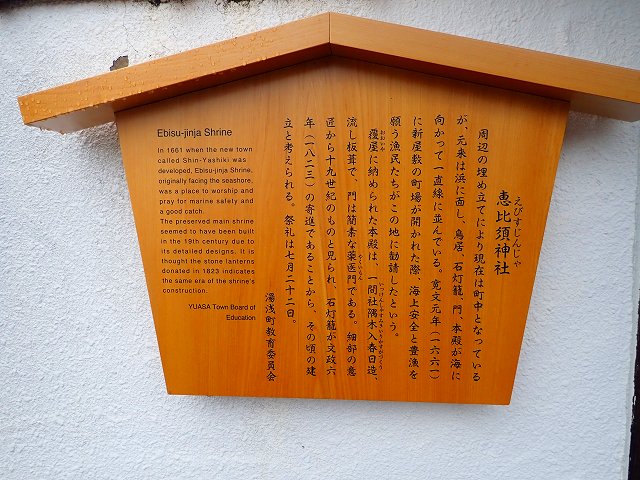 恵比須神社
えびすじんじゃ
周辺の埋め立てにより現在は町中となっている
が、元来は浜に面し、鳥居、石灯籠、門、本殿が海に
向かって一直線に並んでいる。寛文元年(一六六一)
に新屋敷の町場が開かれた際、海上安全と豊漁を
願う漁民たちがこの地に勧請したという。
覆屋に納められた本殿は、一間社隅木入春日造、
おおいや
いっけんしゃすみきいりかすがづくり
流し板葺で、門は簡素な薬医門である。細部の意
やくいもん
匠から十九世紀のものと見られ、石灯籠が文政六
年(一八二三)の寄進であることから、その頃の建
立と考えられる。祭礼は七月二十二日。
湯浅町教育委員会
Ebisu-jinja Shrine
In 1661 when the new town
called Shin-Yashiki was
developed, Ebisu-jinja Shrine,
originally facing the seashore,
was a place to worship and
pray for marine safety and
a good catch.
The preserved main shrine
seemed to have been built
in the 19th century due to
its detailed designs. It is
thought the stone lanterns
donated in 1823 indicates
the same era of the shrine's
construction.
YUASA Town Board of
Education